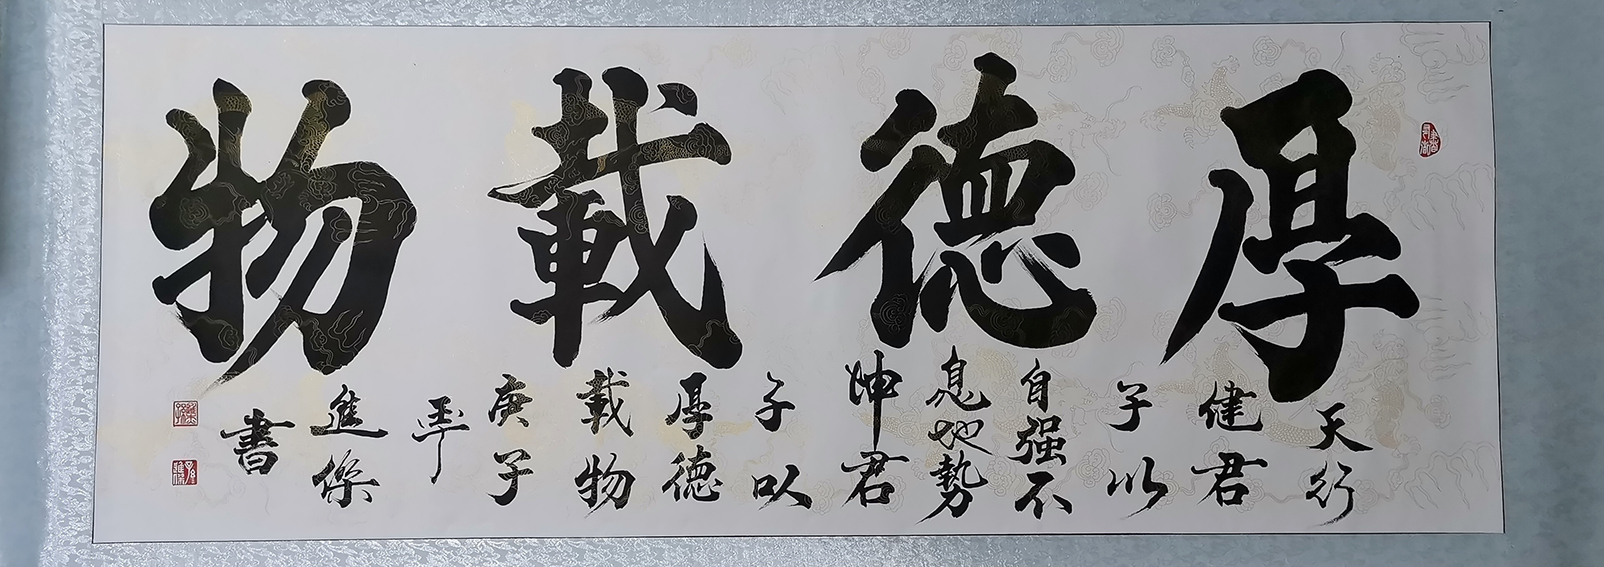 厚德載物
天行
健君
子以
自强不
息地勢
坤君
子以
厚德
載物
庚子
年
進傑
書